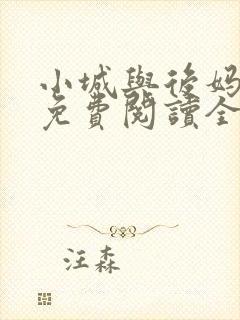 小城與後妈
免費閱讀全
汪森